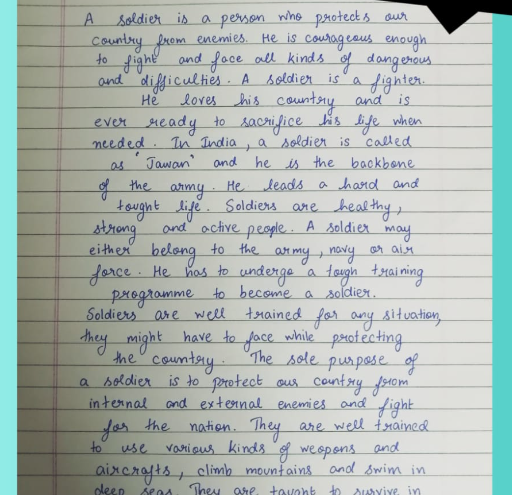 A soldier is a person who protects our
country from enemies. He is courageous enough
to fight and face all kinds of dangerous
and difficulties. A soldier is a fighter.
He loves his country and is
ever ready to sacrifice his life when
needed. In India, a soldier is called
as "Jawan" and he is the backbone
of the army. He leads a hard and
tought life. Soldiers are healthy,
strong and active people. A soldier may
either belong to the army, navy or air
force. He has to undergo a tough training
programme to become a soldier.
Soldiers are well trained for any situation,
they might have to face while protecting
the country. The sole purpose of
a soldier is to protect our country from
internal and external enemies and fight
for the nation. They are well trained
to use various kinds of weapons and
aircrafts, climb mountains and swim in
deep seas. They are taught to survive in